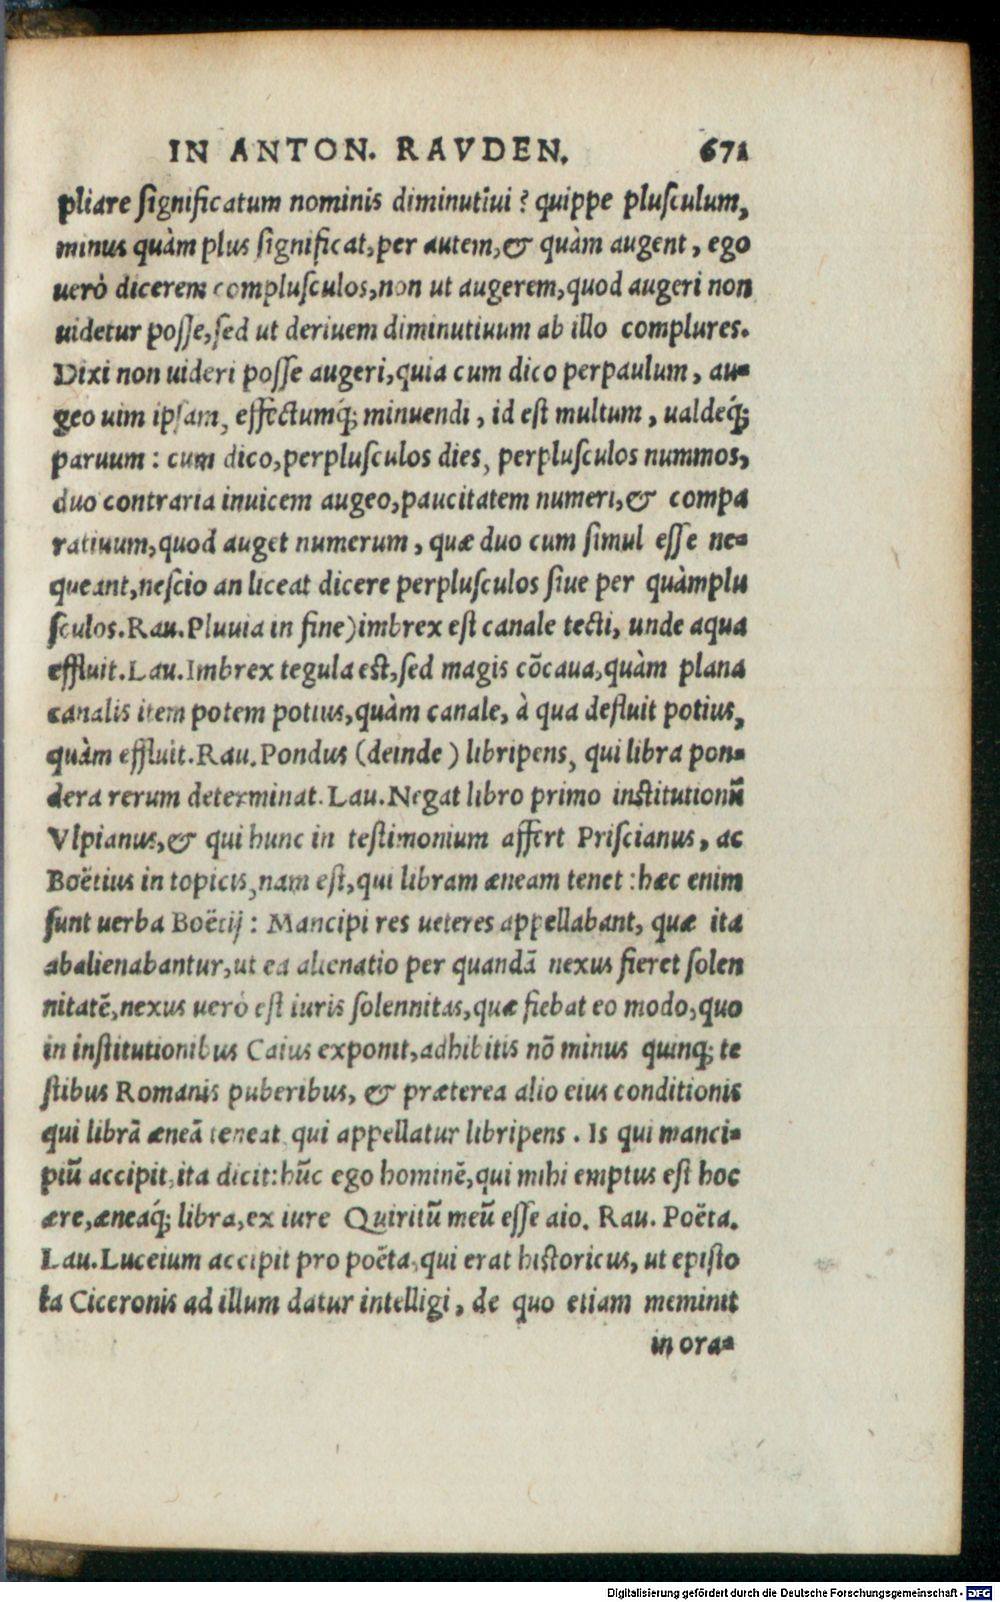 IN ANTON. RAVDEN. 671
pliare ſignificatum nominis diminutiui? quippe pluſculum,
minus quàm plus ſignificat, per autem, & quàm augent, ego
uerò dicerem compluſculos, non ut augerem, quod augeri non
uidetur poſſe, ſed ut deriuem diminutiuum ab illo complures.
Dixi non uideri poſſe augeri, quia cum dico perpaulum, au-
geo uim ipſam, effectumq́; minuendi, id eſt multum, ualdeq́;
paruum: cum dico, perpluſculos dies, perpluſculos nummos,
duo contraria inuicem augeo, paucitatem numeri, & compa
ratiuum, quod auget numerum, quæ duo cum ſimul eſſe ne-
queant, neſcio an liceat dicere perpluſculos ſiue per quàmplu
ſculos. Rau. Pluuia in fine) imbrex eſt canale tecti, unde aqua
effluit. Lau. Imbrex tegula est, ſed magis cōcaua, quàm plana
canalis item potem potius, quàm canale, à qua defluit potius,
quàm effluit. Rau. Pondus (deinde) libripens, qui libra pon-
dera rerum determinat. Lau. Negat libro primo institutionū
Vlpianus, & qui hunc in teſtimonium affert Priſcianus, ac
Boëtius in topicis, nam eſt, qui libram æneam tenet: hæc enim
ſunt uerba Boëtij: Mancipi res ueteres appellabant, quæ ita
abalienabantur, ut ea alienatio per quandã nexus fieret ſolen
nitatẽ, nexus uerò eſt iuris ſolennitas, quæ fiebat eo modo, quo
in inſtitutionibus Caius exponit, adhibitis nō minus quinq; te
ſtibus Romanis puberibus, & præterea alio eius conditionis
qui librã æneã teneat qui appellatur libripens. Is qui manci-
piū accipit, ita dicit: hūc ego hominẽ, qui mihi emptus eſt hoc
ære, æneaq́; libra, ex iure Quiritū meū eſſe aio. Rau. Poëta.
Lau. Luceium accipit pro poëta, qui erat historicus, ut epiſto
la Ciceronis ad illum datur intelligi, de quo etiam meminit
in ora-
Digitalisierung gefördert durch die Deutsche Forschungsgemeinschaft - DFG